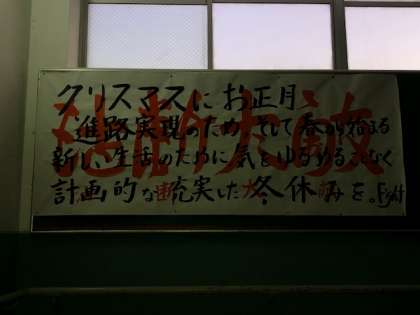 クリスマスにお正月、
進路実現のため、そして春から始まる
新しい生活のために気をゆるめることなく
計画的な充実した冬休みを。Fight
油断大敵